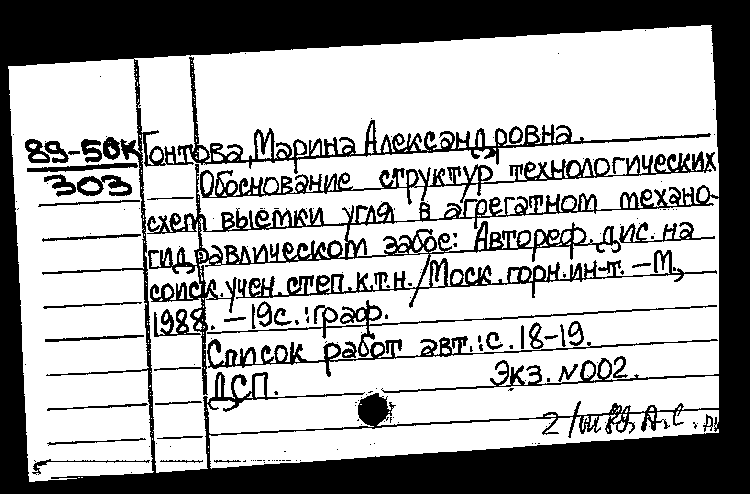 89-50К Гонтова, Марина Александровна.
303 Обоснование структур технологических
схем выемки угля в агрегатном механо-
гидравлическом забое: Автореф. дис. на
соиск. учен. степ. к.т.н. / Моск. горн. ин-т. - М.,
1988. - 19с.: граф.
Список работ авт.: с. 18-19.
ДСП. Экз. №002.
2/III 89. А.С.